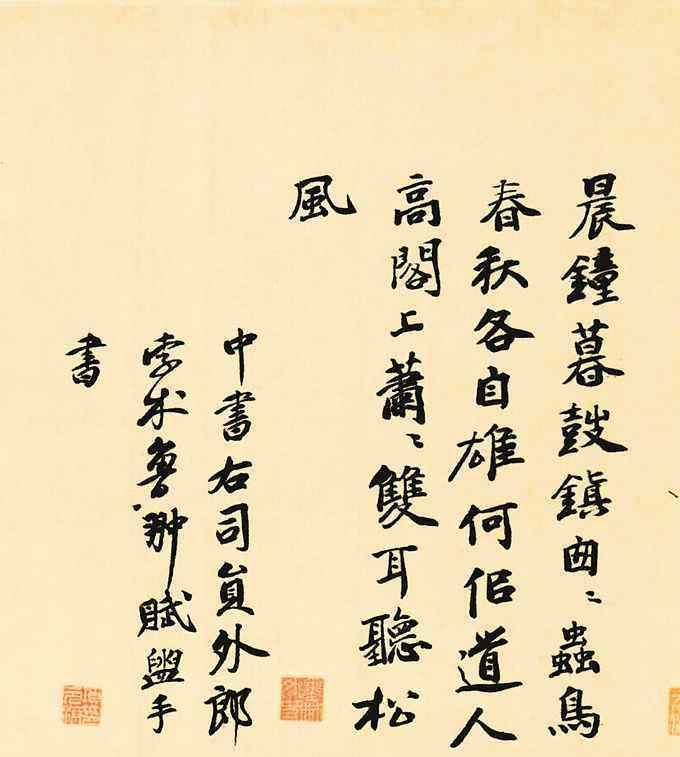 晨鐘暮鼓鎮囱〻蟲鳥
春秋各自雄何佀道人
高閣上蕭〻雙耳聽松
風
中書右司貟外郎
孛术魯翀賦盥手
書